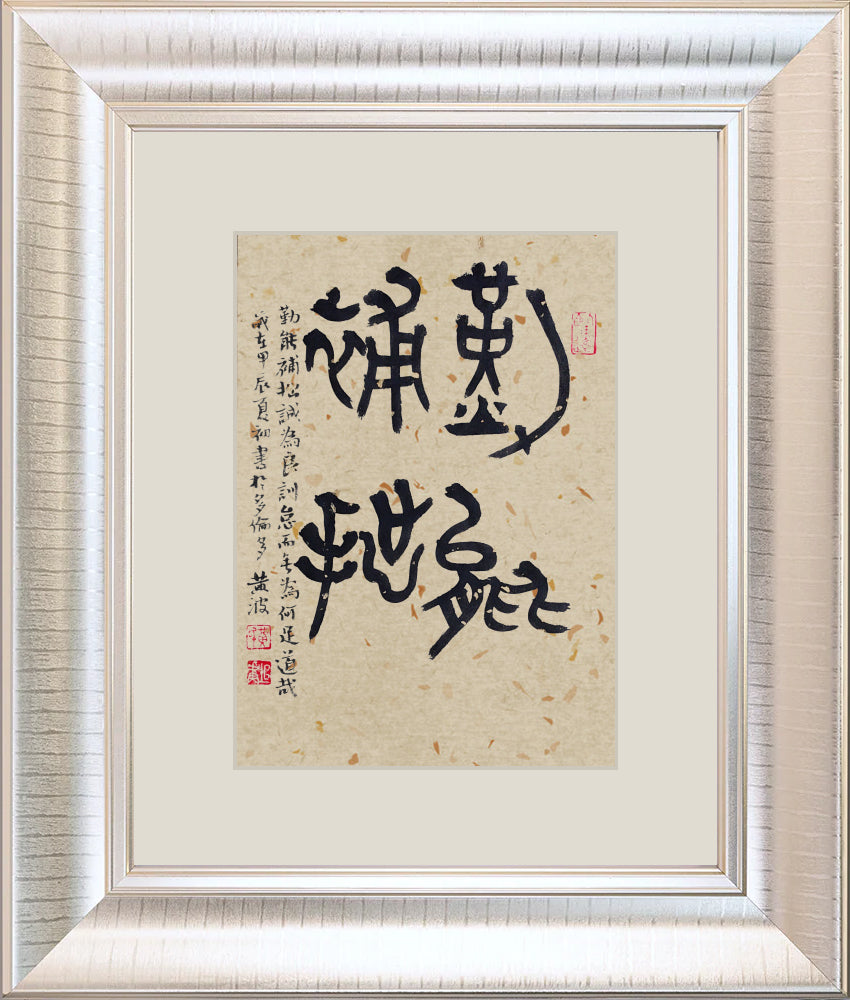 勤能
補拙
勤能補拙誠為良訓怠而無為何足道哉
歲在甲辰夏初書於多倫多 黃波